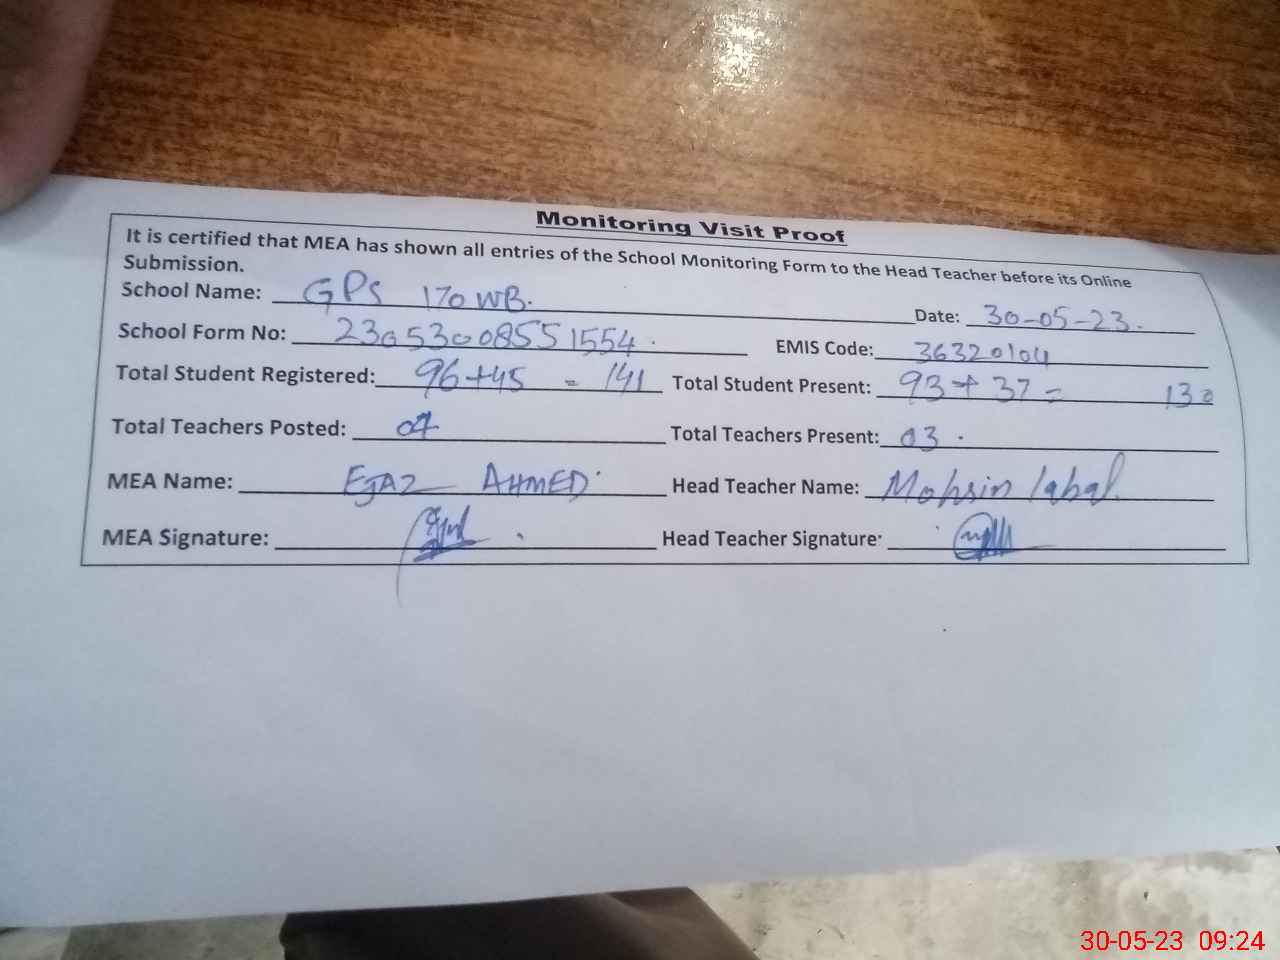 Monitoring Visit Proof
It is certified that MEA has shown all entries of the School Monitoring Form to the Head Teacher before its Online
Submission.
School Name: GPS 170 WB.
Date: 30-05-23.
School Form No: 23053008551554.
EMIS Code: 36320104
Total Student Registered: 96+45 = 141
Total Student Present: 93+37 = 130
Total Teachers Posted:
Total Teachers Present: 03.
MEA Name: EJAZ AHMED
Head Teacher Name: Mohsin Iqbal.
MEA Signature:
Head Teacher Signature:
30-05-23 09:24